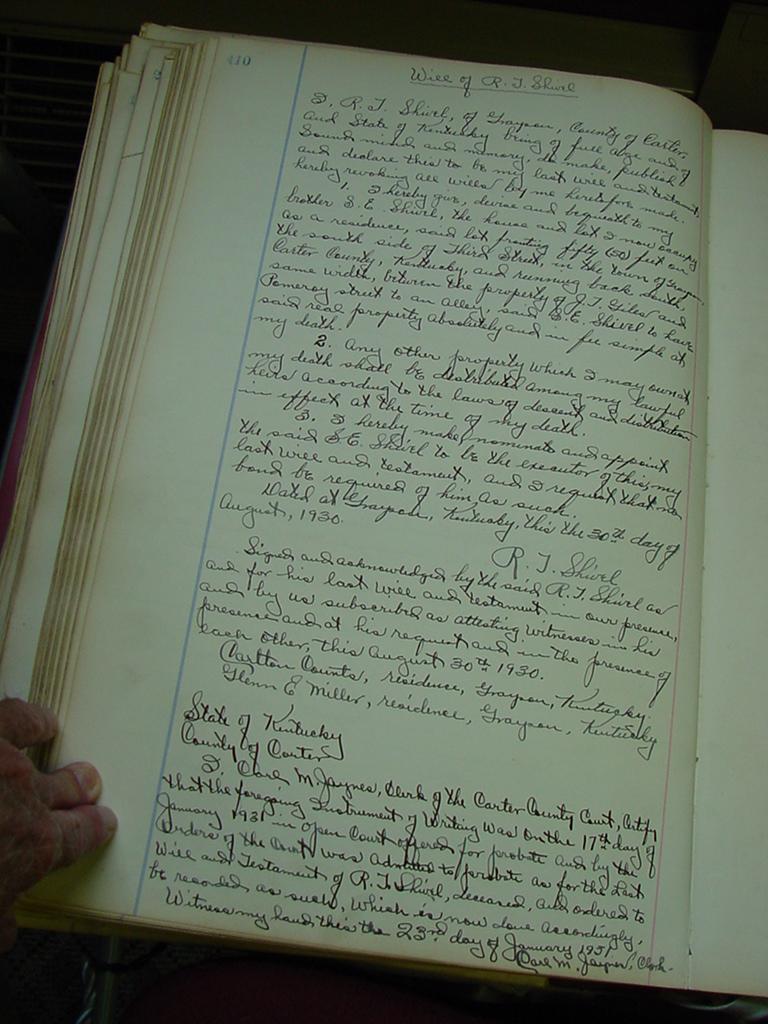 410
Will of R. T. Shivel
I, R. T. Shivel, of Grayson, County of Carter,
and State of Kentucky being of full age and of
sound mind and memory, do make, publish &
and declare this to be my last will and testament,
hereby revoking all wills by me heretofore made.
1. I hereby give, devise and bequeath to my
brother S. E. Shivel, the house and lot I now occupy
as a residence, said lot fronting fifty (50) feet on
the south side of Third Street, in the town of Grayson,
Carter County, Kentucky, and running back south,
same width, between the property of J. T. and
Pomeroy street to an alley, said S. E. Shivel to have
said real property absolutely and in fee simple at
my death.
2. Any other property which I may own at
my death shall be distributed among my lawful
heirs according to the laws of descent and distribution
in effect at the time of my death.
3. I hereby make, nominate and appoint
the said S. E. Shivel to be the executor of this, my
last will and testament, and I request that no
bond be required of him as such.
Dated at Grayson, Kentucky, this the 30th day of
August, 1930.
R. T. Shivel
Signed and acknowledged by the said R. T. Shivel as
and for his last will and testament in our presence,
and by us subscribed as attesting witnesses in his
presence and at his request and in the presence of
each other, this August 30th 1930.
Carlton Counts, residence, Grayson, Kentucky.
Glenn E Miller, residence, Grayson, Kentucky
State of Kentucky
County of Carter
I, Carl M. Jaynes, Clerk of the Carter County Court, Certify
that the foregoing Instrument of Writing was on the 17th day of
January 1931 in open Court offered for probate and by the
Orders of the Court was admitted to probate as for the Last
Will and Testament of R. T. Shivel, deceased, and ordered to
be recorded as such, which is now done accordingly,
Witness my hand this the 23rd day of January 1931
Carl M. Jaynes, Clerk.